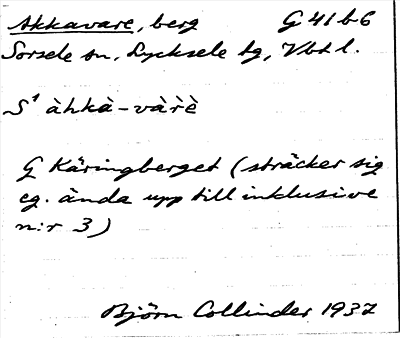 Akkavare, berg G 41 b 6
Sorsele sn, Lycksele lg, Vbt l.
S¹ àhkà-vàr̀è
G Käringberget (sträcker sig
eg. ända upp till inklusive
n:r 3)
Björn Collinder 1937